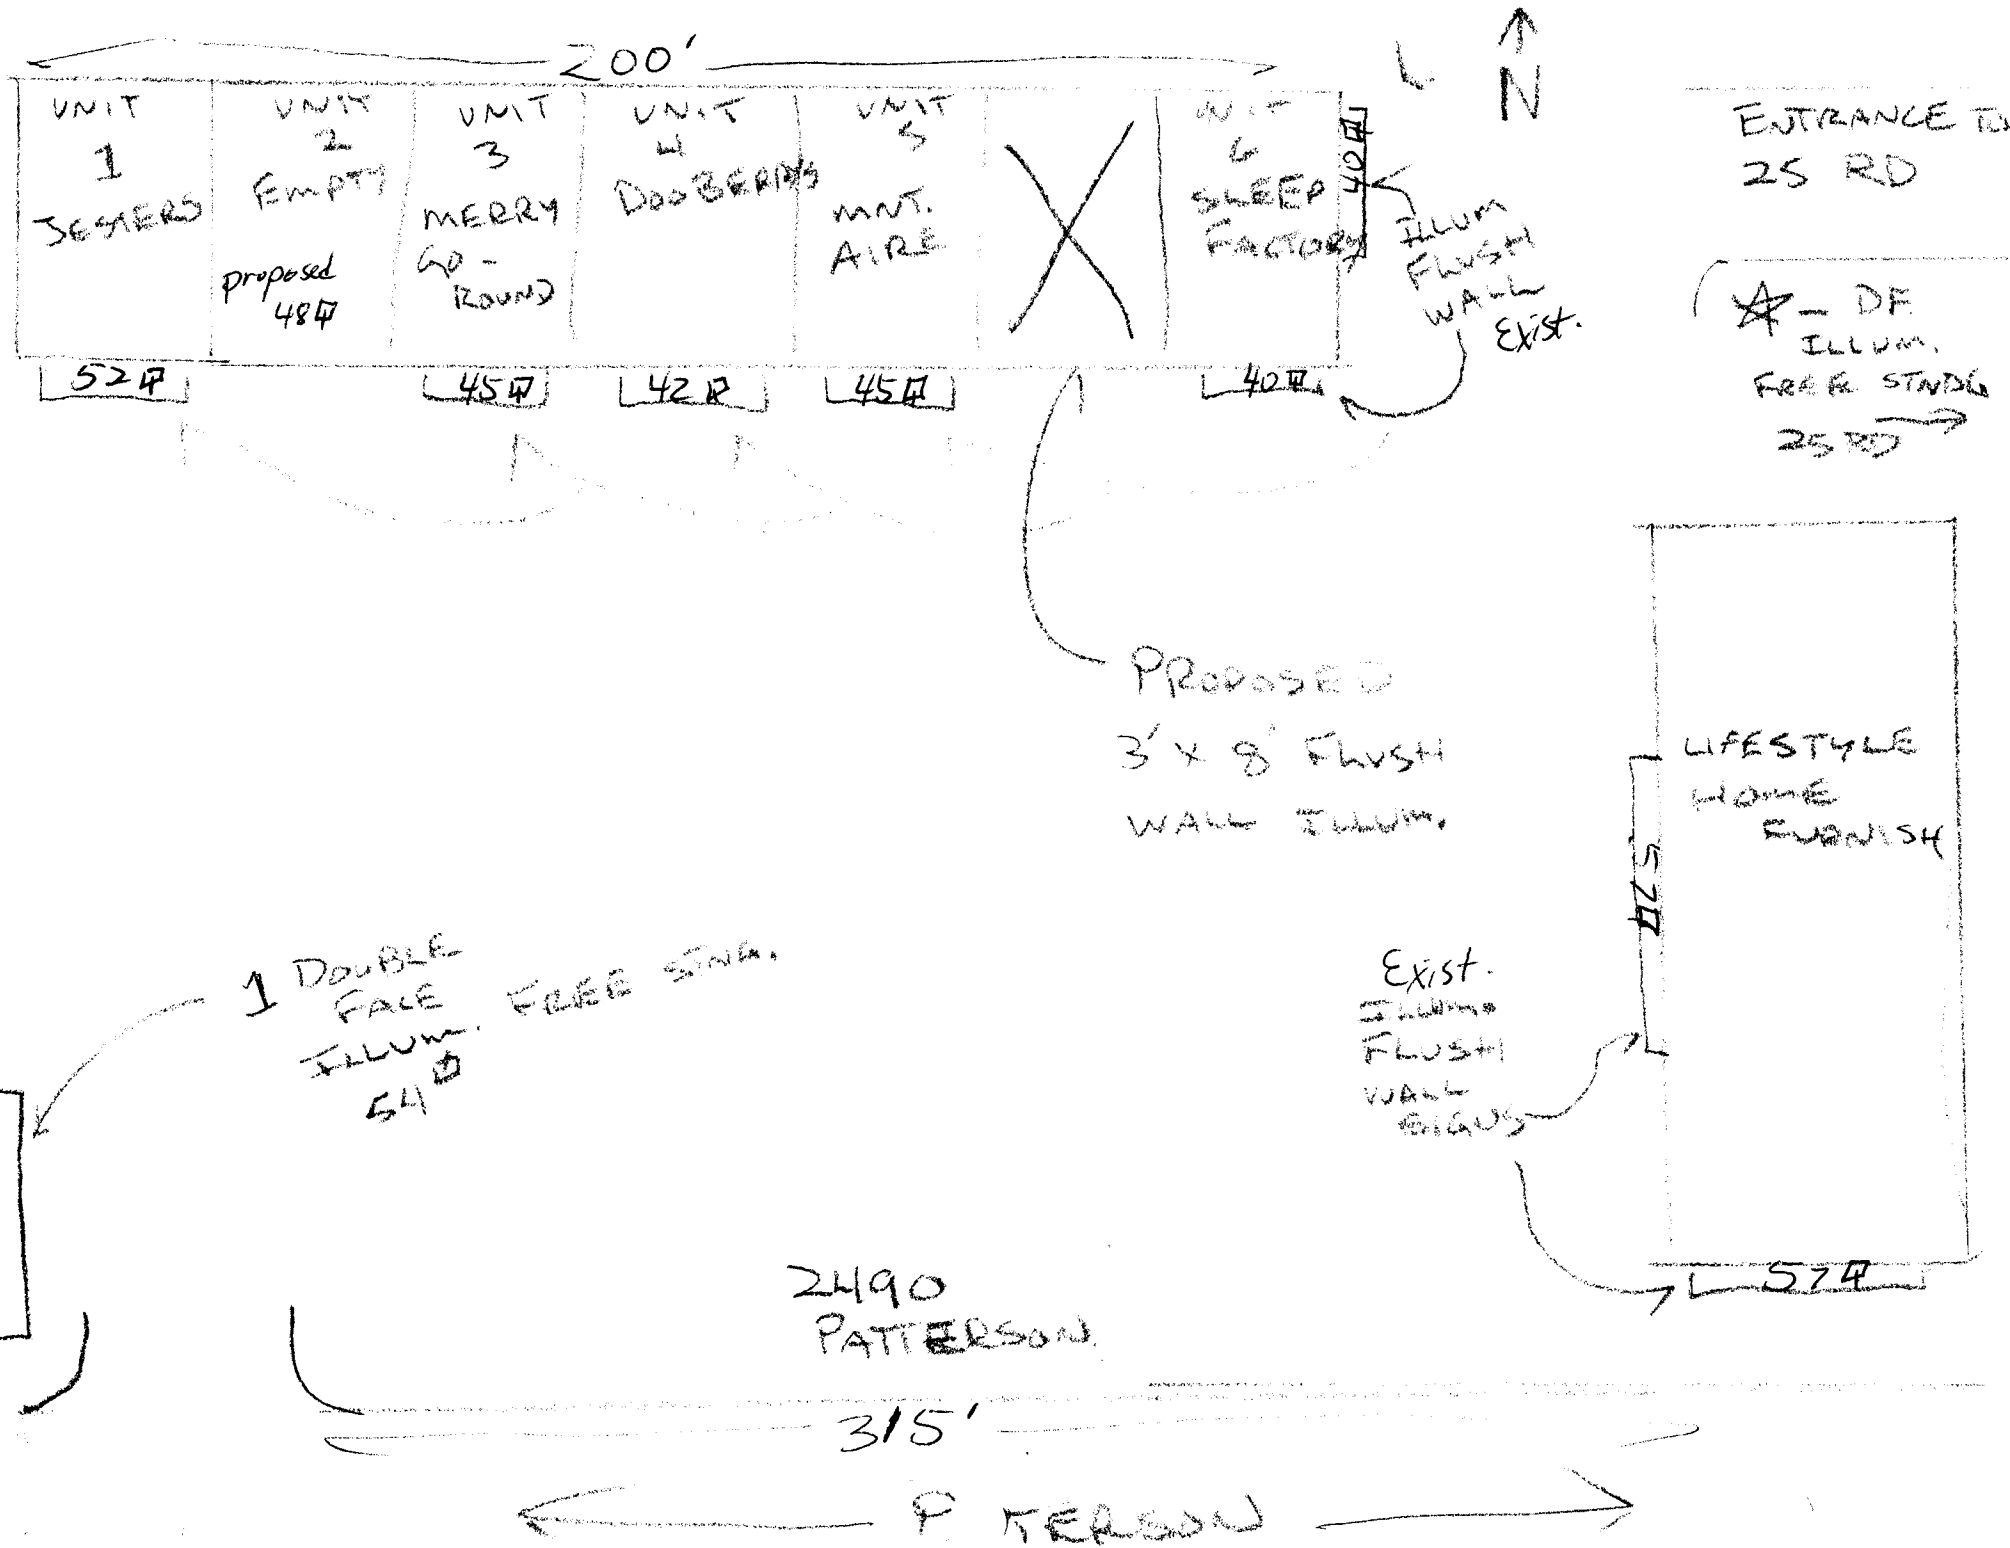 200'
N
UNIT
1
JESTERS
UNIT
2
EMPTY
proposed
48
UNIT
3
MERRY
GO-
ROUND
UNIT
4
DOOBERRYS
UNIT
5
MNT.
AIRE
X
UNIT
6
SLEEP
FACTORY
40
ILLUM
FLUSH
WALL
Exist.
ENTRANCE TO
25 RD
- DF.
ILLUM.
FREE STNDG
25 RD
52
45
42
45
40
PROPOSED
3' x 8' FLUSH
WALL ILLUM.
LIFESTYLE
HOME
FURNISH
57
Exist.
ILLUM.
FLUSH
WALL
SIGNS
57
1 DOUBLE
FACE
ILLUM. FREE STNG.
54
2490
PATTERSON
315'
P TERSON